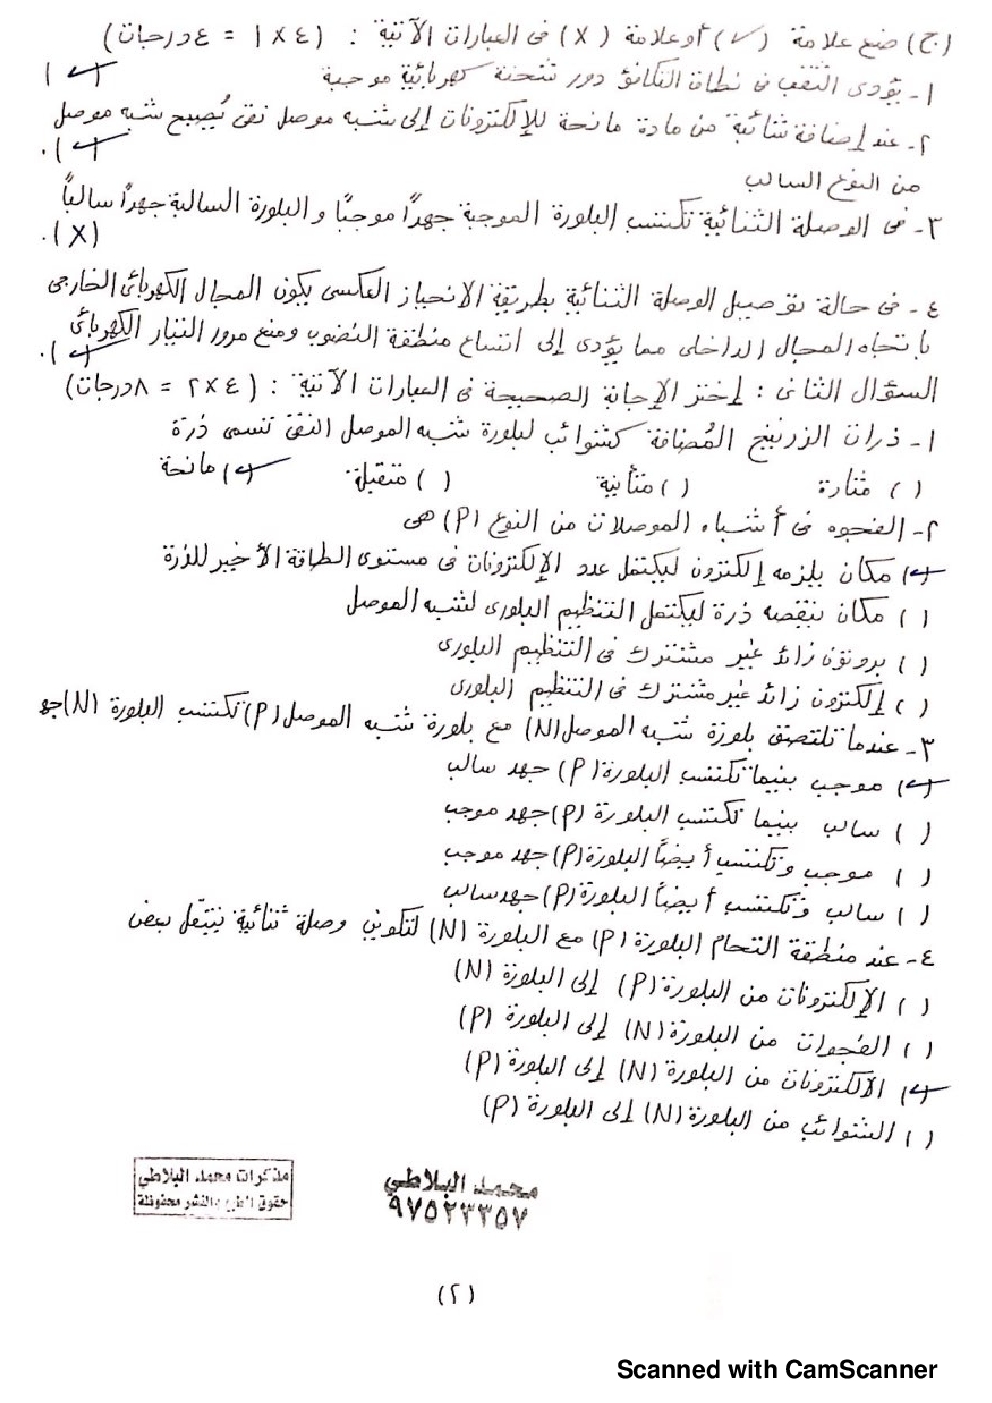 (ج) ضع علامة (✓) أو علامة (X) فى العبارات الآتية : (٤ × ١ = ٤ درجات)
١- يؤدى الثقب فى نطاق التكافؤ دور شحنة كهربائية موجبة (✓)
٢- عند إضافة شائبة من مادة مانحة للإلكترونات إلى شبه موصل نقى يُصبح شبه موصل
من النوع السالب (✓).
٣- فى الوصلة الثنائية تكتسب البلورة الموجبة جهداً موجباً و البلورة السالبة جهداً سالباً
(X).
٤- فى حالة توصيل الوصلة الثنائية بطريقة الانحياز العكسى يكون المجال الكهربائى الخارجى
باتجاه المجال الداخلى مما يؤدى إلى اتساع منطقة النضوب ومنع مرور التيار الكهربائى (✓).
السؤال الثانى : إختر الإجابة الصحيحة فى العبارات الآتية : (٤ × ٢ = ٨ درجات)
١- ذرات الزرنيخ المُضافة كشوائب لبلورة شبه الموصل النقى تسمى ذرة
( ) مثارة ( ) متأينة ( ) متقبلة (✓) مانحة
٢- الفجوه فى أشباه الموصلات من النوع (P) هى
(✓) مكان يلزمه إلكترون ليكتمل عدد الإلكترونات فى مستوى الطاقة الأخير للذرة
( ) مكان ينقصه ذرة ليكتمل التنظيم البلورى لشبه الموصل
( ) بروتون زائد غير مشترك فى التنظيم البلورى
( ) إلكترون زائد غير مشترك فى التنظيم البلورى
٣- عندما تلتصق بلورة شبه الموصل (N) مع بلورة شبه الموصل (P) تكتسب البلورة (N) جهد
(✓) موجب بينما تكتسب البلورة (P) جهد سالب
( ) سالب بينما تكتسب البلورة (P) جهد موجب
( ) موجب وتكتسب أيضاً البلورة (P) جهد موجب
( ) سالب وتكتسب أيضاً البلورة (P) جهد سالب
٤- عند منطقة التحام البلورة (P) مع البلورة (N) لتكوين وصلة ثنائية ينتقل بعض
( ) الإلكترونات من البلورة (P) إلى البلورة (N)
( ) الفجوات من البلورة (N) إلى البلورة (P)
(✓) الالكترونات من البلورة (N) إلى البلورة (P)
( ) الشوائب من البلورة (N) إلى البلورة (P)
محمد البلاطي
٩٧٥٢٣٣٥٧
مذكرات محمد البلاطي
حقوق الطبع والنشر محفوظة
(٢)
Scanned with CamScanner